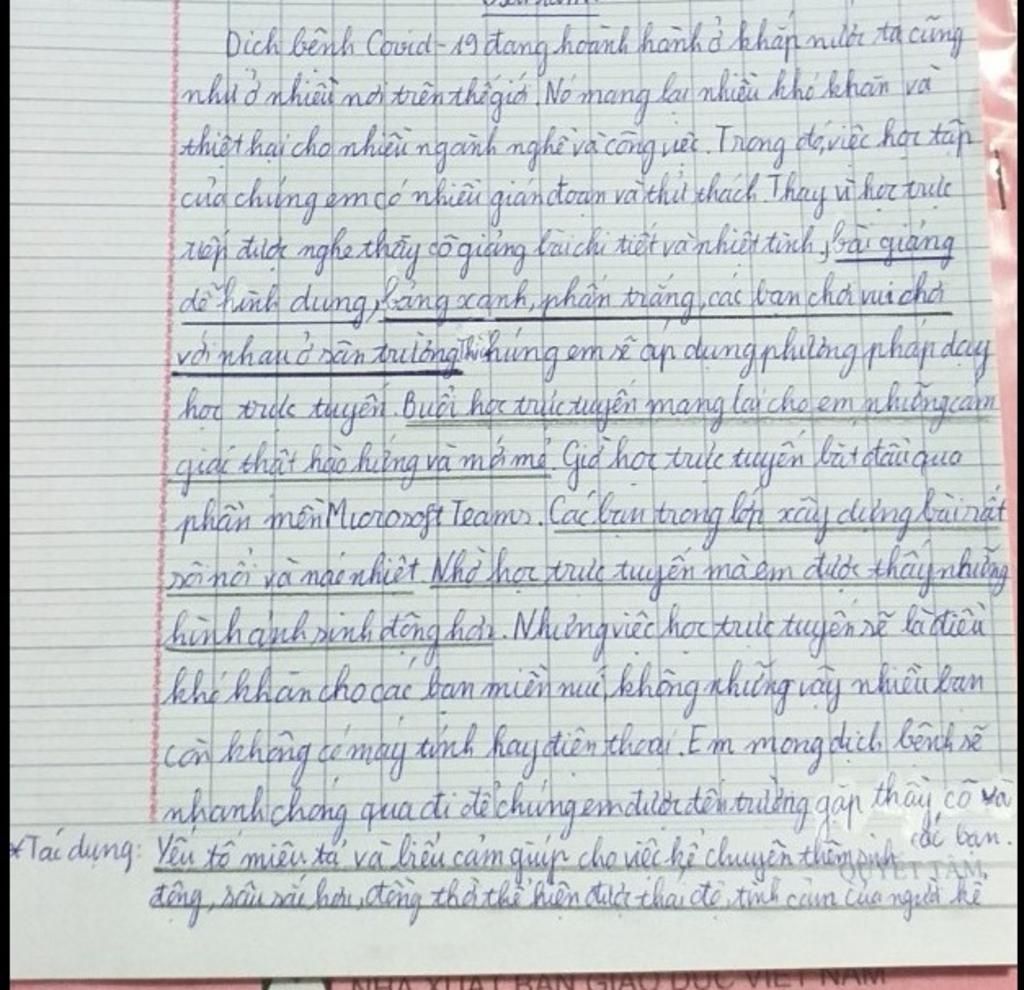 Dịch bệnh Covid-19 đang hoành hành ở khắp nước ta cũng
như ở nhiều nơi trên thế giới. Nó mang lại nhiều khó khăn và
thiệt hại cho nhiều ngành nghề và công việc. Trong đó, việc học tập
của chúng em có nhiều gián đoạn và thử thách. Thay vì học trực
tiếp được nghe thầy cô giảng bài chi tiết và nhiệt tình, bài giảng
dễ hình dung, bảng xanh, phấn trắng, các bạn chơi vui chơi
với nhau ở sân trường Thì chúng em sẽ áp dụng phương pháp dạy
học trực tuyến. Buổi học trực tuyến mang lại cho em những cảm
giác thật hào hứng và mới mẻ. Giờ học trực tuyến bắt đầu qua
phần mền Microsoft Teams. Các bạn trong lớp xây dựng bài rất
sôi nổi và náo nhiệt. Nhờ học trực tuyến mà em được thấy những
hình ảnh sinh động hơn. Nhưng việc học trực tuyến sẽ là điều
khó khăn cho các bạn miền núi, không những vậy nhiều bạn
còn không có máy tính hay điện thoại. Em mong dịch bệnh sẽ
nhanh chóng qua đi để chúng em được đến trường gặp thầy cô và
các bạn.
*Tác dụng: Yếu tố miêu tả và biểu cảm giúp cho việc kể chuyện thêm sinh
QUYẾT TÂM,
động, sâu sắc hơn, đồng thời thể hiện được thái độ, tình cảm của người kể
NHÀ XUẤT BẢN GIÁO DỤC VIỆT NAM